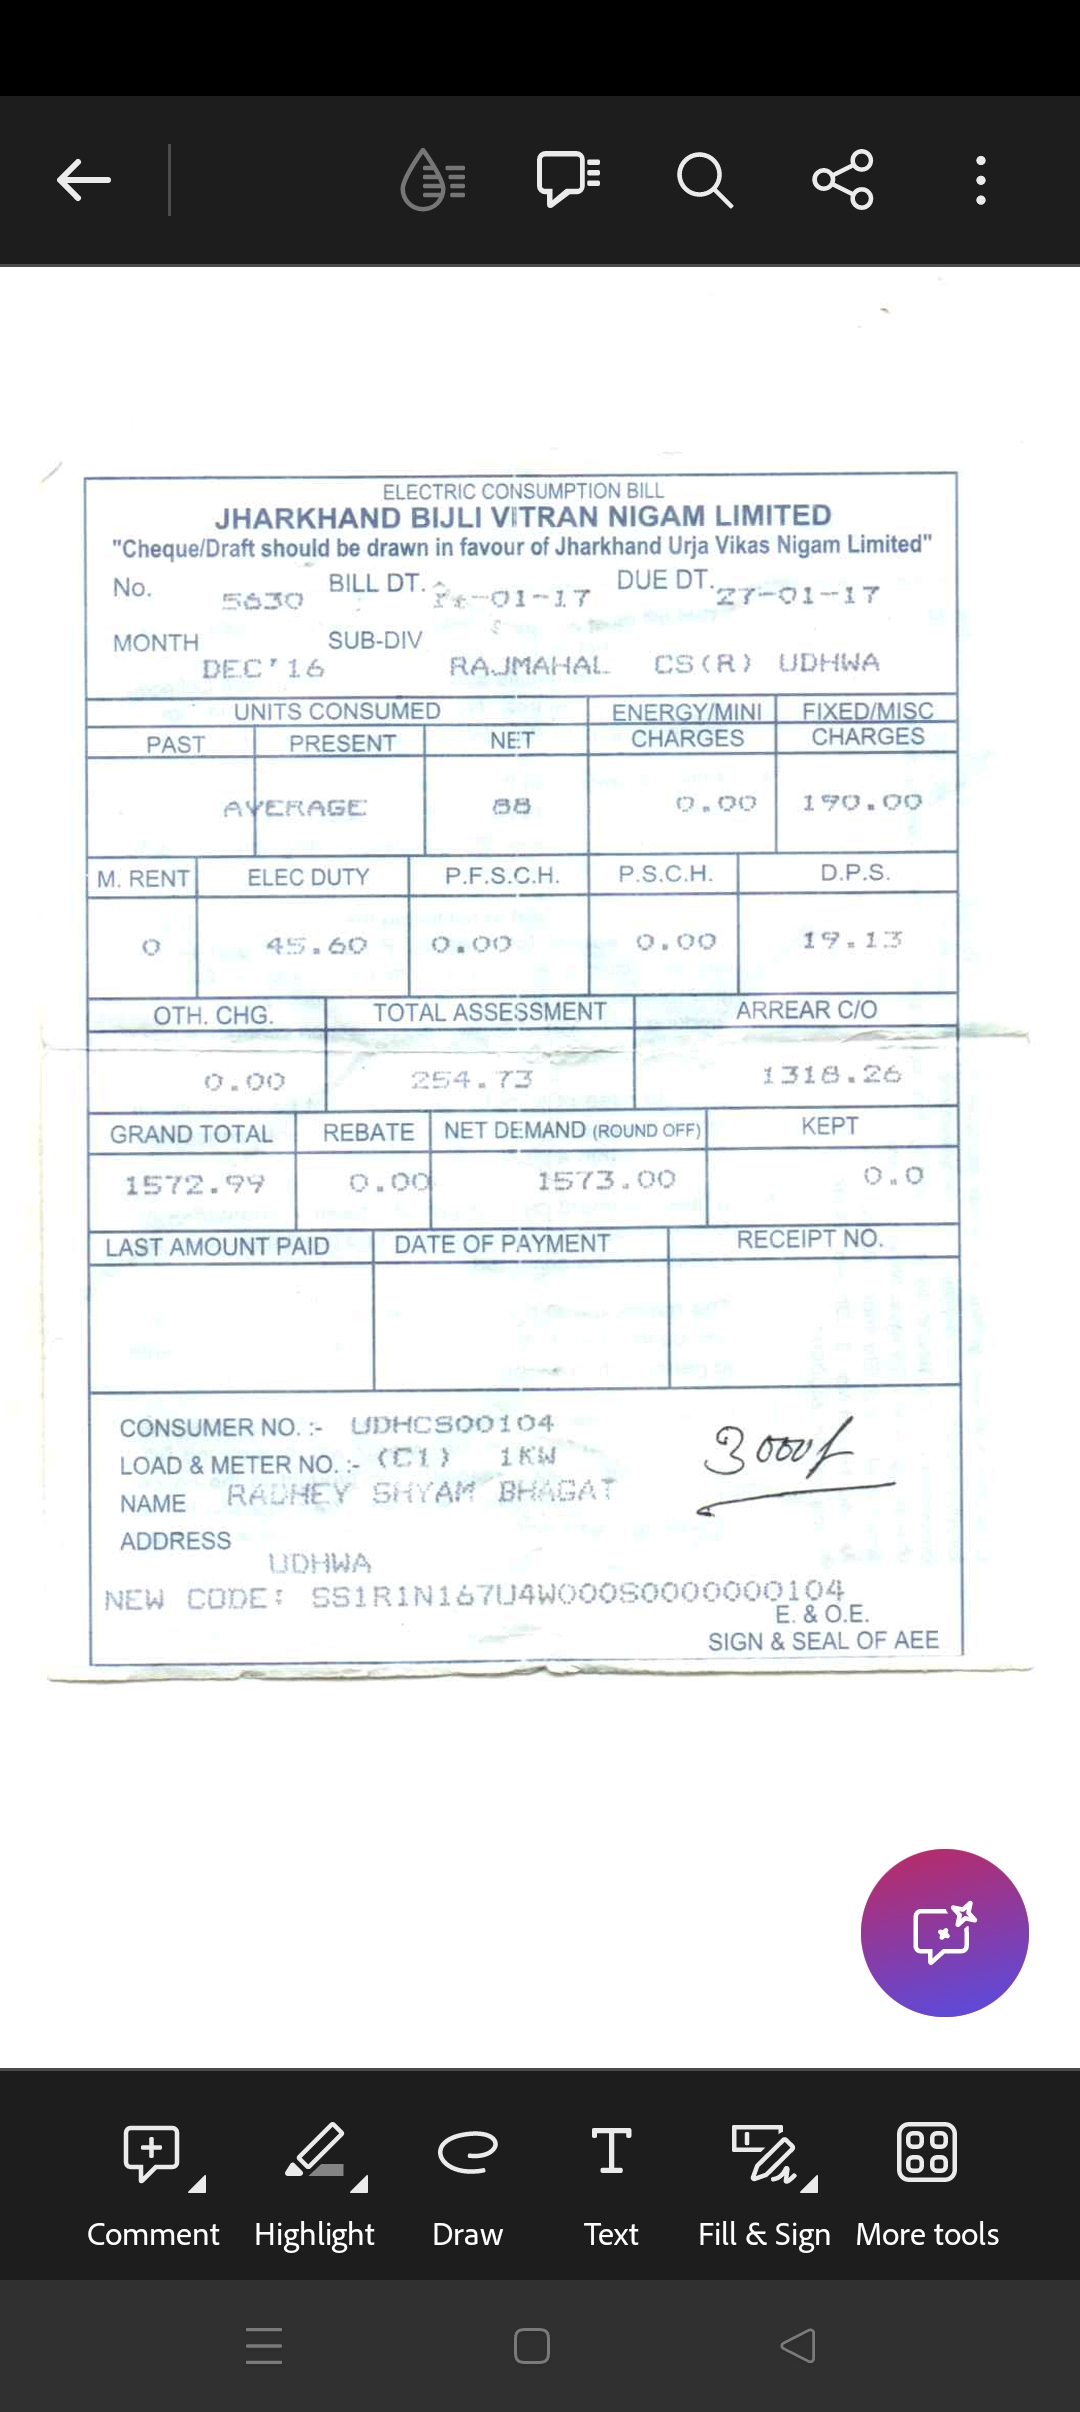 ELECTRIC CONSUMPTION BILL
JHARKHAND BIJLI VITRAN NIGAM LIMITED
"Cheque/Draft should be drawn in favour of Jharkhand Urja Vikas Nigam Limited"
No. 5630 BILL DT. -01-17 DUE DT. 27-01-17
MONTH DEC'16 SUB-DIV RAJMAHAL CS(R) UDHWA
UNITS CONSUMED ENERGY/MINI FIXED/MISC
PAST PRESENT NET CHARGES CHARGES
AVERAGE 88 0.00 190.00
M. RENT ELEC DUTY P.F.S.C.H. P.S.C.H. D.P.S.
0 45.60 0.00 0.00 19.13
OTH. CHG. TOTAL ASSESSMENT ARREAR C/O
0.00 254.73 1318.26
GRAND TOTAL REBATE NET DEMAND (ROUND OFF) KEPT
1572.99 0.00 1573.00 0.0
LAST AMOUNT PAID DATE OF PAYMENT RECEIPT NO.
CONSUMER NO. :- UDHCS00104
LOAD & METER NO. :- (C1) 1KW
3000/
NAME RADHEY SHYAM BHAGAT
ADDRESS
UDHWA
NEW CODE: SS1R1N167U4W000S0000000104
E. & O.E.
SIGN & SEAL OF AEE
Comment Highlight Draw Text Fill & Sign More tools